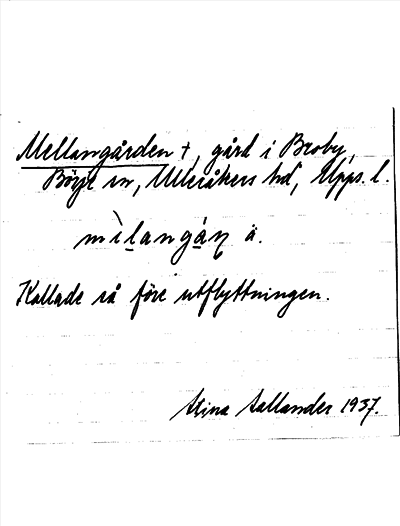 Mellangården +, gård i Broby,
Börje sn, Ulleråkers hd, Upps. l.
mìlangáɳ ä.
Kallade så före utflyttningen.
Stina Sallander 1937.